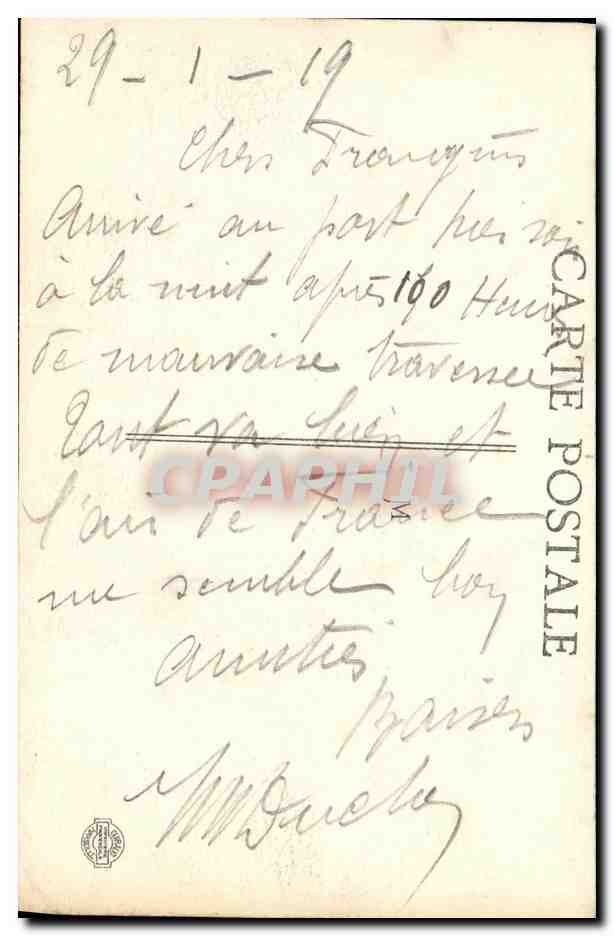 29 - 1 - 19
Arrivé au port hier soir
à la nuit après 190 Heures
de mauvaise traversée
Tout va bien et
l'air de France
me semble bon
Amitiés
Baisers
CARTE POSTALE
CPAPHIL
M